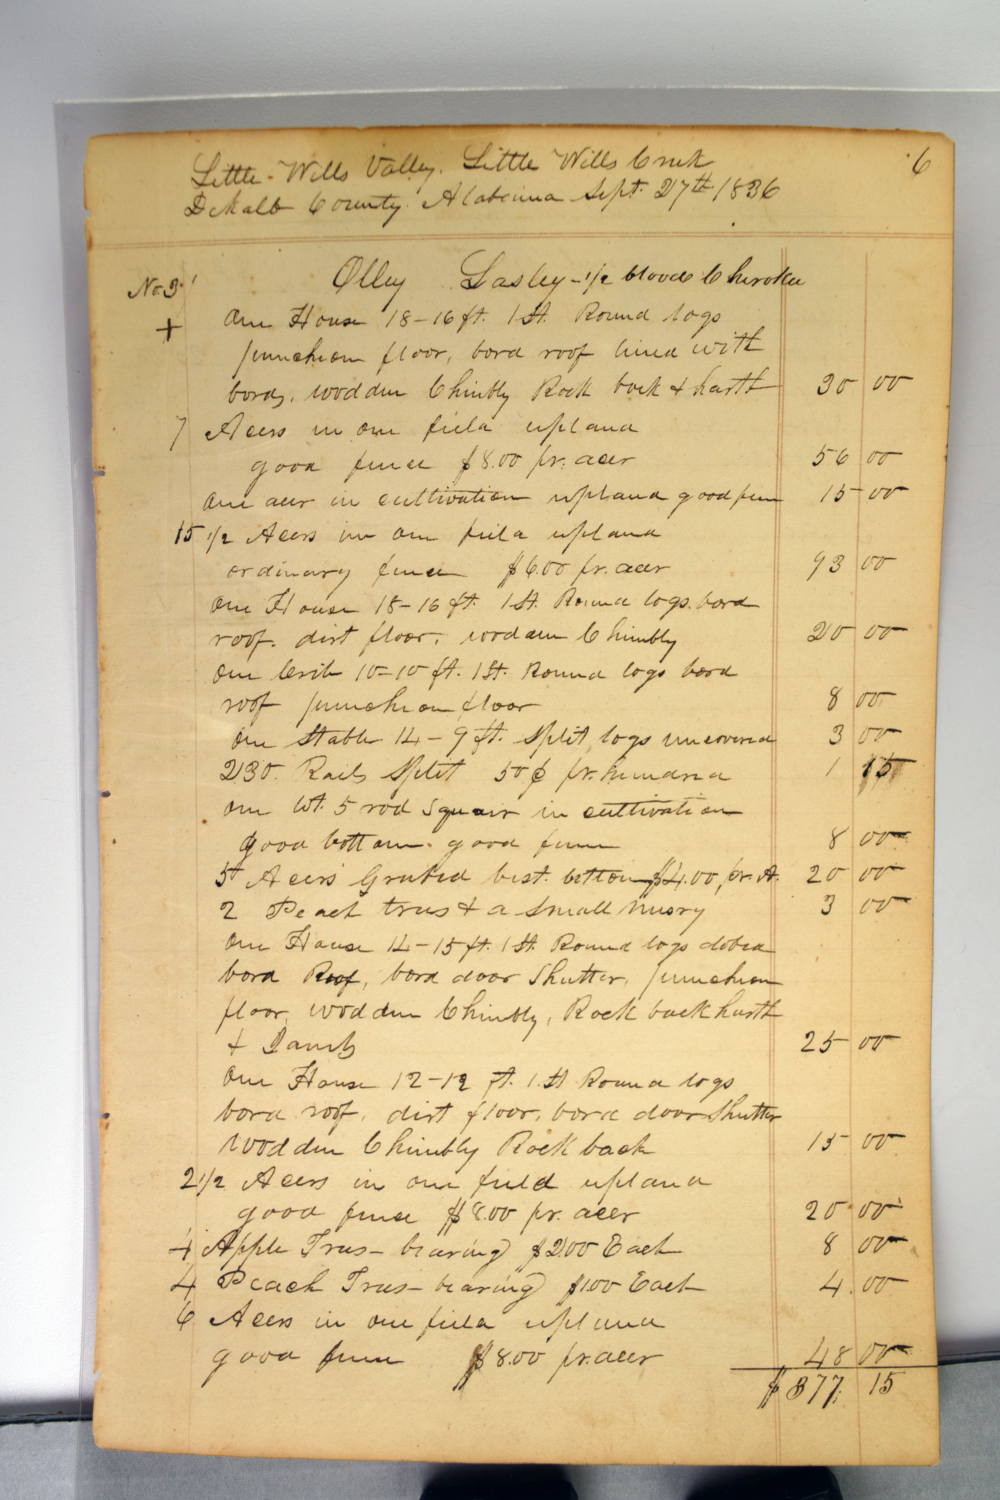 6
Little Wills Valley. Little Wills Creek
DeKalb County. Alabama Sept. 27th 1836
No. 3
Olley Lasley - 1/2 blood Cherokee
+ One House 18-16 ft. 1 St. Round logs
puncheon floor, bord roof lined with
bords, wodden Chimbly Rock back & harth 30 00
7 Acers in one field upland
good fence $8.00 pr. acer 56 00
One acer in cultivation upland good fence 15 00
15 1/2 Acers in one field upland
ordinary fence $6.00 pr. acer 93 00
One House 18-16 ft. 1 St. Round logs. bord
roof. dirt floor. wodden Chimbly 20 00
One Crib 10-10 ft. 1 St. Round logs bord
roof puncheon floor 8 00
One Stable 14-9 ft. Split logs uncovered 3 00
230. Rails Split 50¢ pr. hundred 1 15
One lot. 5 rod Squair in cultivation
good bottom. good fence 8 00
5 Acers Grubed best. bottom $4.00 pr. A. 20 00
2 Peach trees & a Small nusry 3 00
One House 14-15 ft. 1 St. Round logs dobed
bord Roof, bord door Shutter, puncheon
floor, wodden Chimbly, Rock back harth
& Jambs 25 00
One House 12-12 ft. 1 St Round logs
bord roof. dirt floor, bord door Shutter
wodden Chimbly Rock back 15 00
2 1/2 Acers in one field upland
good fence $8.00 pr. acer 20 00
4 Apple Trees - bearing $2.00 Each 8 00
4 Peach Trees - bearing $1.00 Each 4.00
6 Acers in one field upland
good fence $8.00 pr. acer 48 00
$377. 15